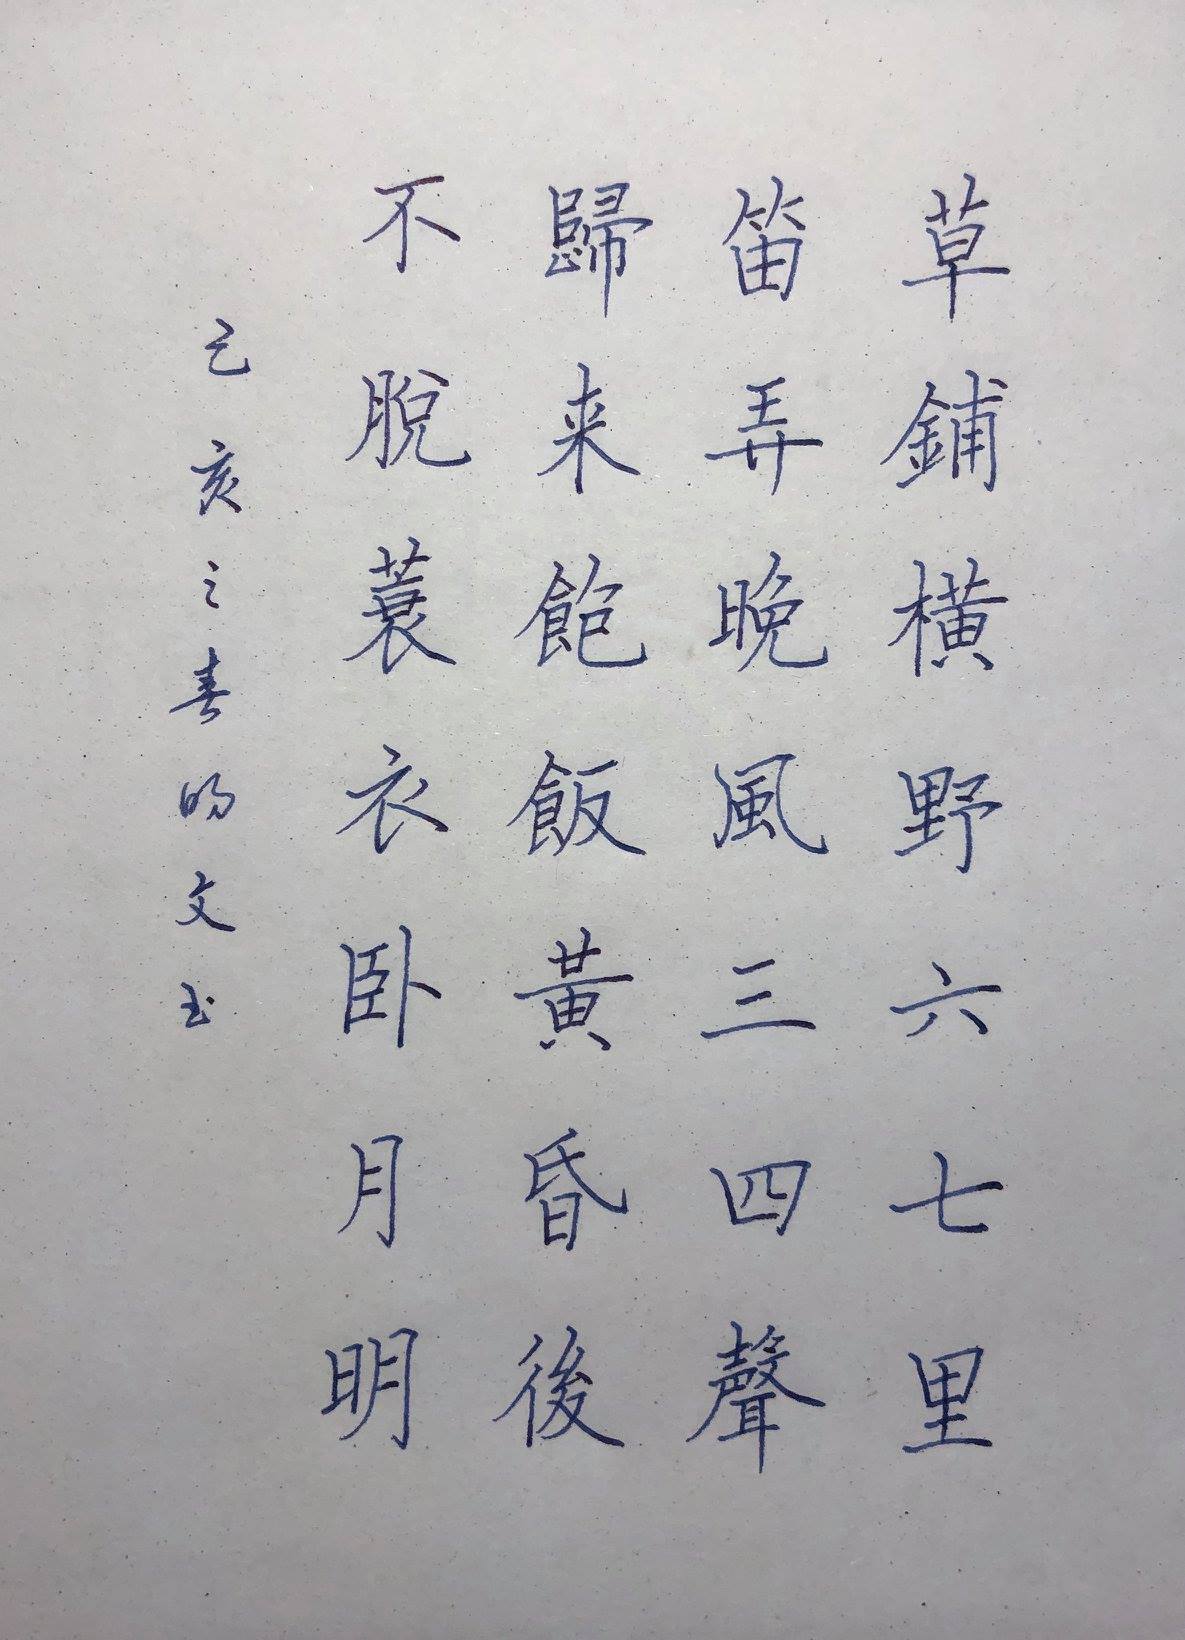 草鋪橫野六七里
笛弄晚風三四聲
歸来飽飯黃昏後
不脫蓑衣卧月明
乙亥之春明文书